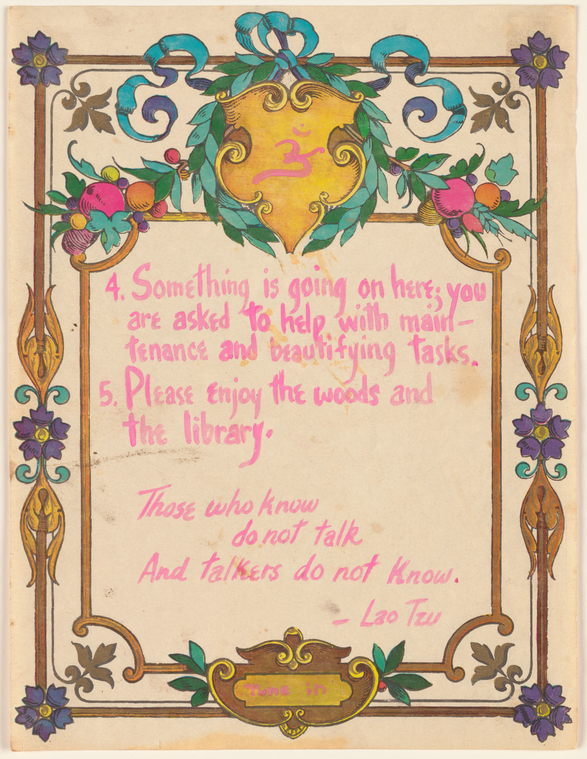 ॐ
4. Something is going on here; you
are asked to help with main-
tenance and beautifying tasks.
5. Please enjoy the woods and
the library.
Those who know
do not talk
And talkers do not know.
- Lao Tzu
Tune in